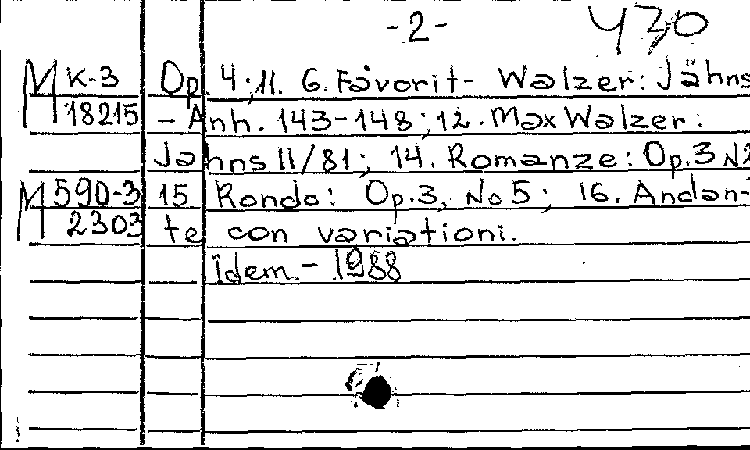 -2- 430
М К-3 Op. 4; 11. 6. Favorit- Walzer: Jähns
18215 - Anh. 143-148; 12. Max Walzer:
Jahns II/81; 14. Romanze: Op.3 N2
М 590-3 15 Rondo: Op.3, No 5; 16. Andan-
2303 te con variationi.
Idem. - 1988